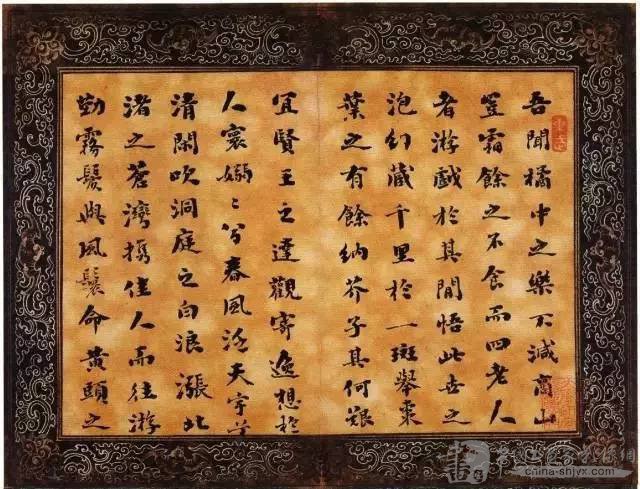 吾聞橘中之樂不減商山
豈霜餘之不食而四老人
者游戲於其間悟此世之
泡幻藏千里於一斑舉棗
葉之有餘納芥子其何艱
宜賢王之達觀寄逸想於
人寰嫋〻兮春風泛天宇兮
清閑吹洞庭之白浪漲北
渚之蒼灣攜佳人而往游
勤霧鬢與風鬟命黃頭之
china-shjyx.com